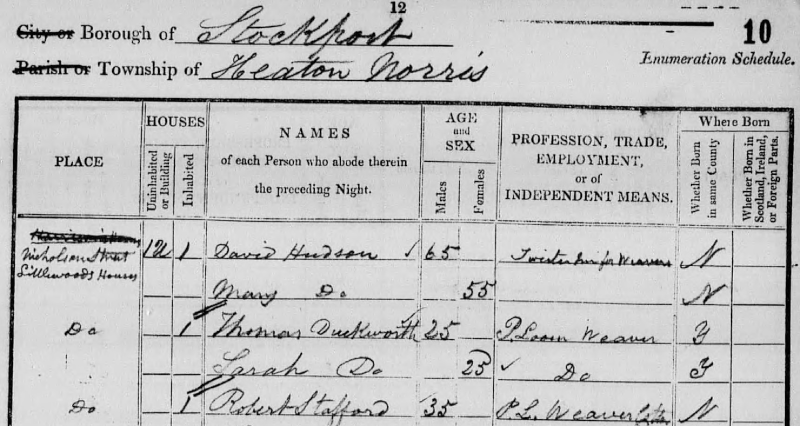 12
City or Borough of Stockport
10
Parish or Township of Heaton Norris
Enumeration Schedule.
PLACE
HOUSES
Uninhabited or Building
Inhabited
NAMES
of each Person who abode therein
the preceding Night.
AGE
and
SEX
Males
Females
PROFESSION, TRADE,
EMPLOYMENT,
or of
INDEPENDENT MEANS.
Where Born
Whether Born in same County
Whether Born in Scotland, Ireland, or Foreign Parts.
Nicholson Street 1U 1 David Hudson 65 Twister In for Weavers N
Littlewoods Houses
Mary Do 55 N
Do 1 Thomas Duckworth 25 P Loom Weaver Y
Sarah Do 25 Do Y
Do 1 Robert Stafford 35 P. L. Weaver N